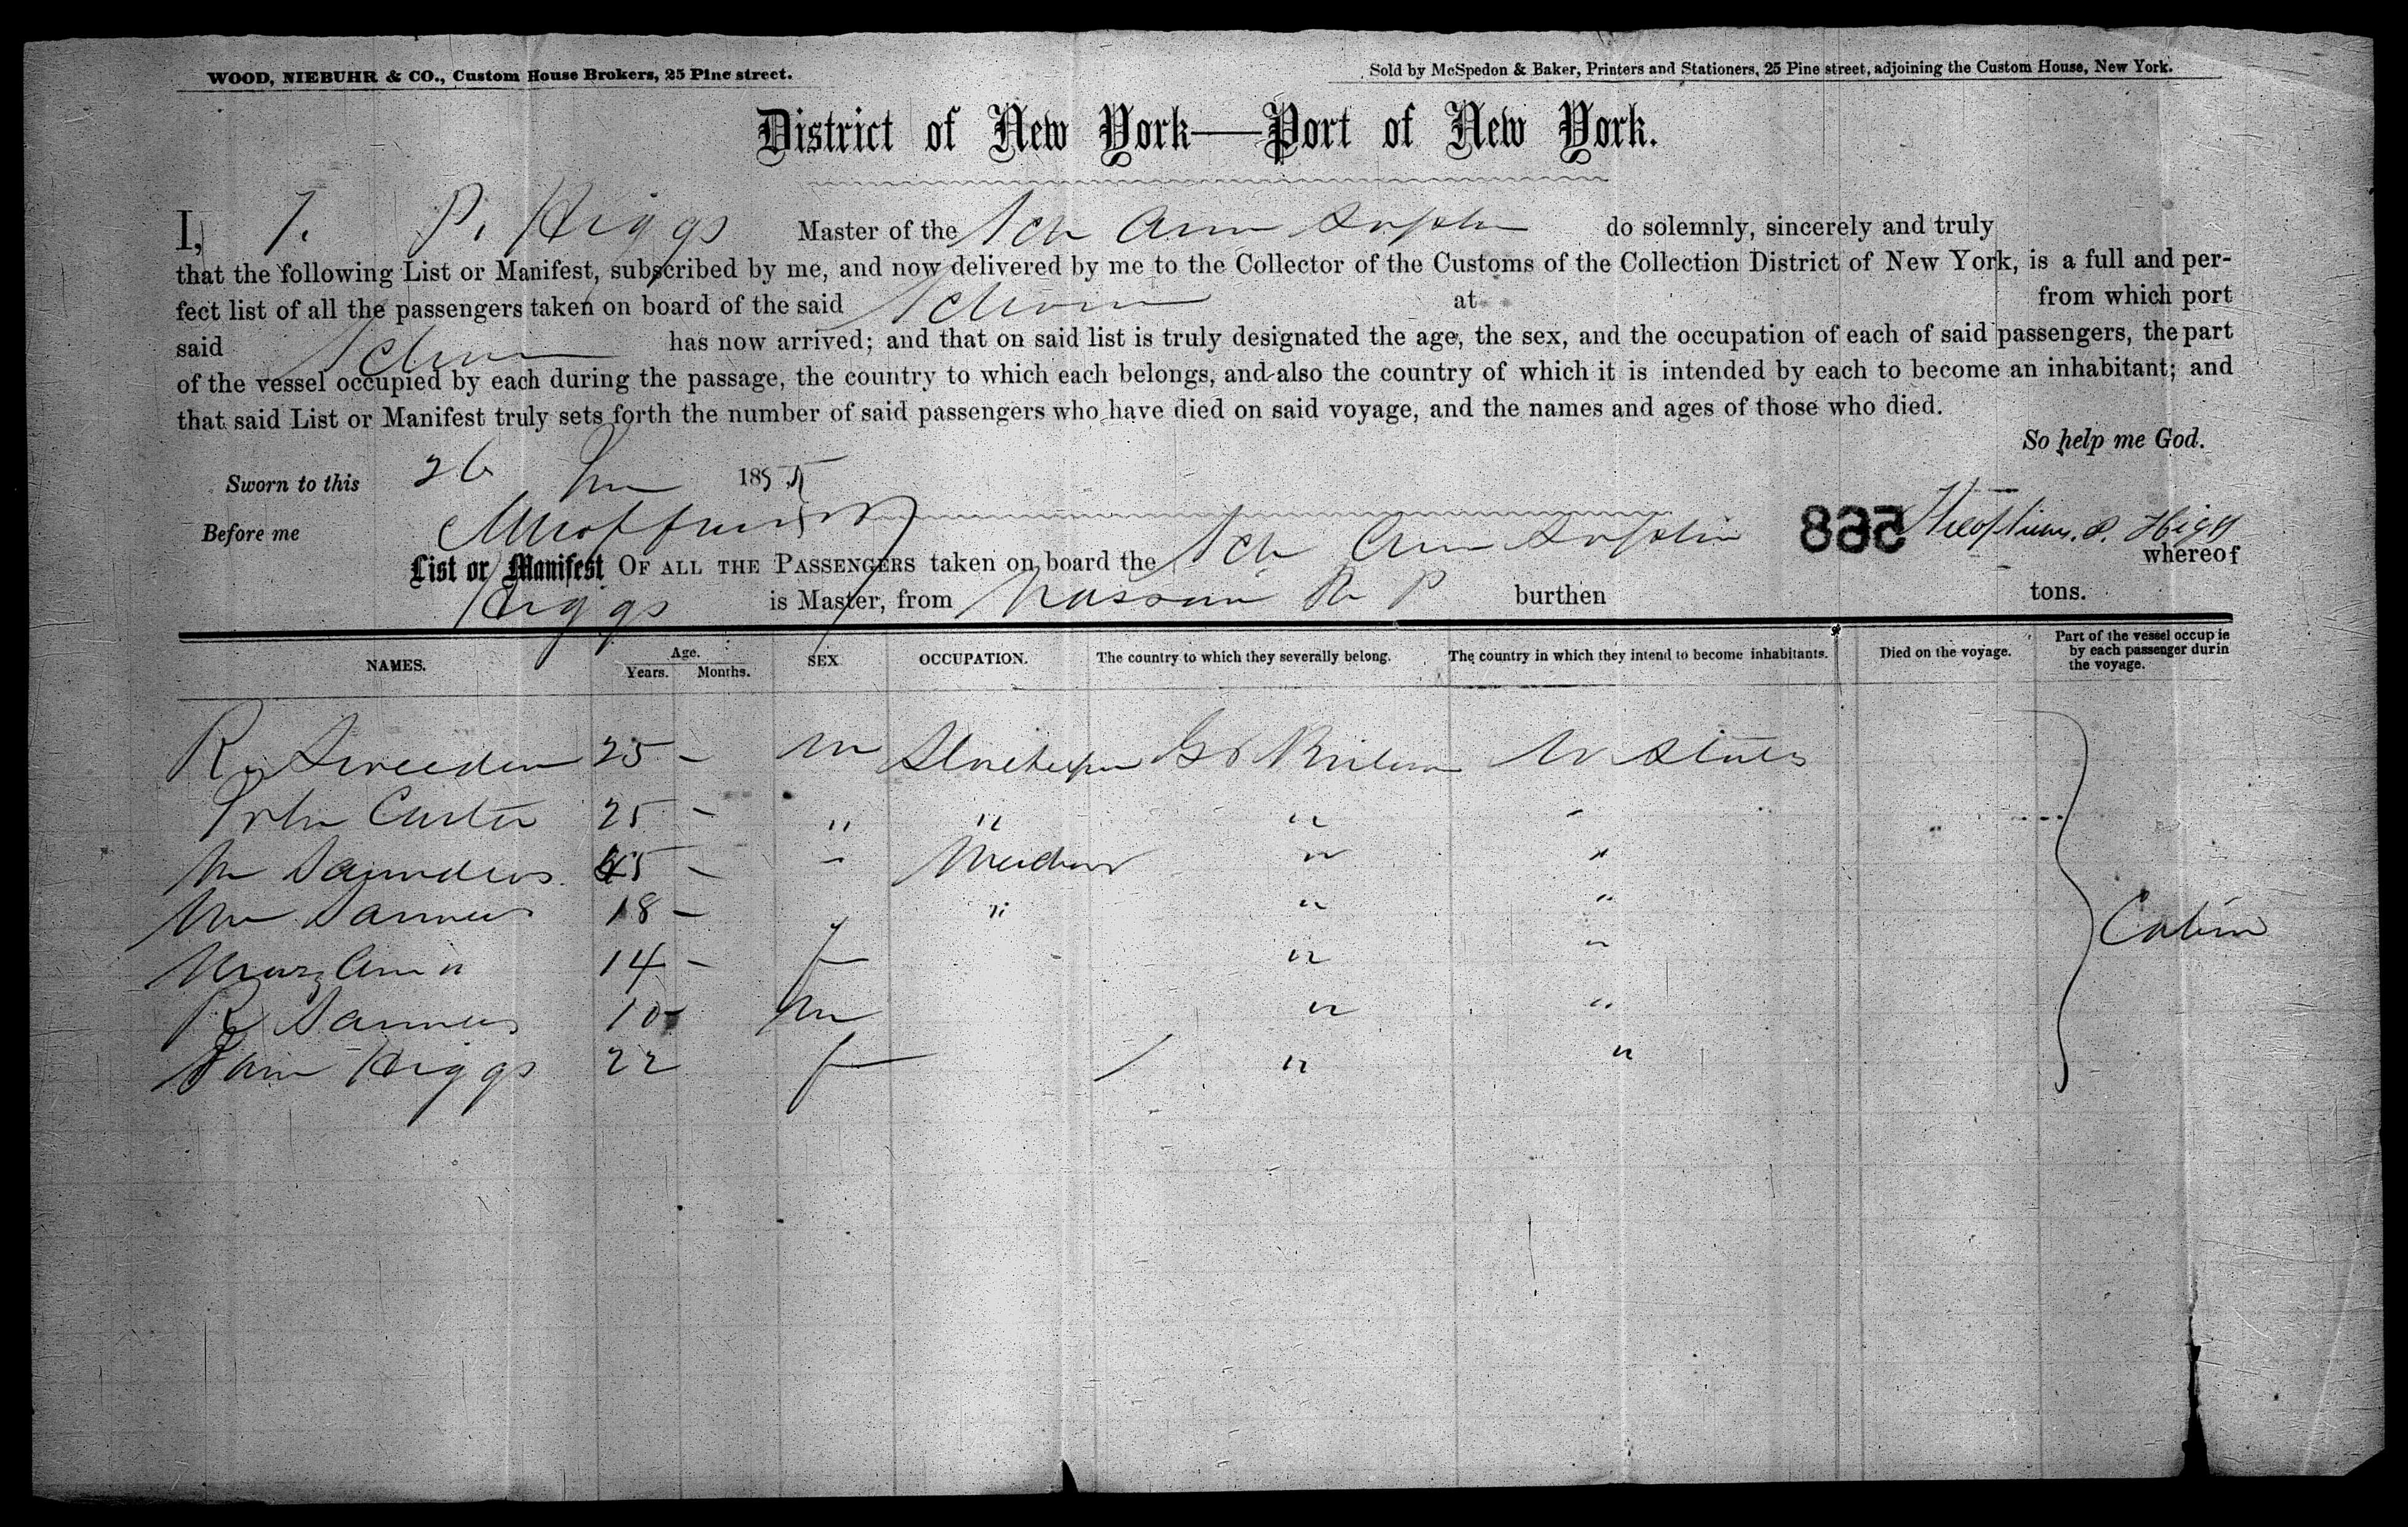 WOOD, NIEBUHR & CO., Custom House Brokers, 25 Pine street.
Sold by McSpedon & Baker, Printers and Stationers, 25 Pine street, adjoining the Custom House, New York.
District of New York—Port of New York.
I, T. P. Higgs Master of the Sch Ann Sophia do solemnly, sincerely and truly
that the following List or Manifest, subscribed by me, and now delivered by me to the Collector of the Customs of the Collection District of New York, is a full and per-
fect list of all the passengers taken on board of the said Schooner at from which port
said Schooner has now arrived; and that on said list is truly designated the age, the sex, and the occupation of each of said passengers, the part
of the vessel occupied by each during the passage, the country to which each belongs, and also the country of which it is intended by each to become an inhabitant; and
that said List or Manifest truly sets forth the number of said passengers who have died on said voyage, and the names and ages of those who died.
So help me God.
Sworn to this 26 1855
Before me
568 Theophilus. P. Higgs
List or Manifest OF ALL THE PASSENGERS taken on board the Sch Ann Sophia whereof
Higgs is Master, from Nassau N P burthen tons.
NAMES. Age. Years. Months. SEX OCCUPATION. The country to which they severally belong. The country in which they intend to become inhabitants. Died on the voyage. Part of the vessel occupie by each passenger durin the voyage.
R. Sweeden 25 - m Storekeeper Gt Britain U States
John Carter 25 - " " " "
Wm Saunders 45 - " " "
Wm Saunders 18 - " " "
Mary Ann " 14 - f " "
R Saunders 10 - m " "
Higgs 22 f " "
Cabin